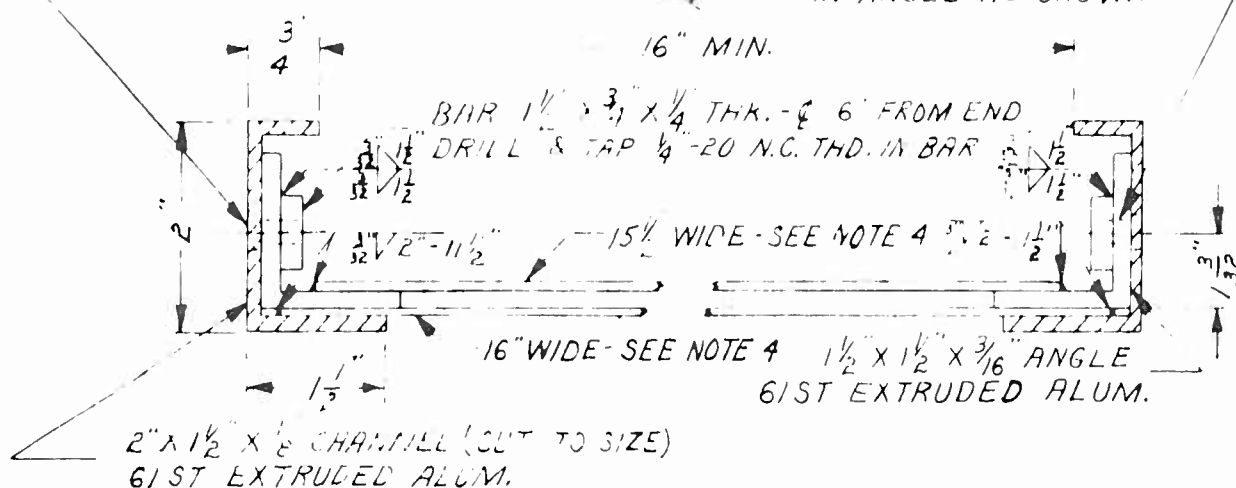 3
4
16" MIN.
BAR 1½" X ¾" X ¼ THK. - ℄ 6" FROM END
DRILL & TAP ¼"-20 N.C. THD. IN BAR
3/32 1½
3/32 1½
1½
1½
2"
3/32 2"-11½"
15½ WIDE-SEE NOTE 4
2-1½"
1 3/32"
16" WIDE-SEE NOTE 4
1½" X 1½" X 3/16" ANGLE
61ST EXTRUDED ALUM.
1½"
2" X 1½" X ⅛ CHANNEL (CUT TO SIZE)
61ST EXTRUDED ALUM.